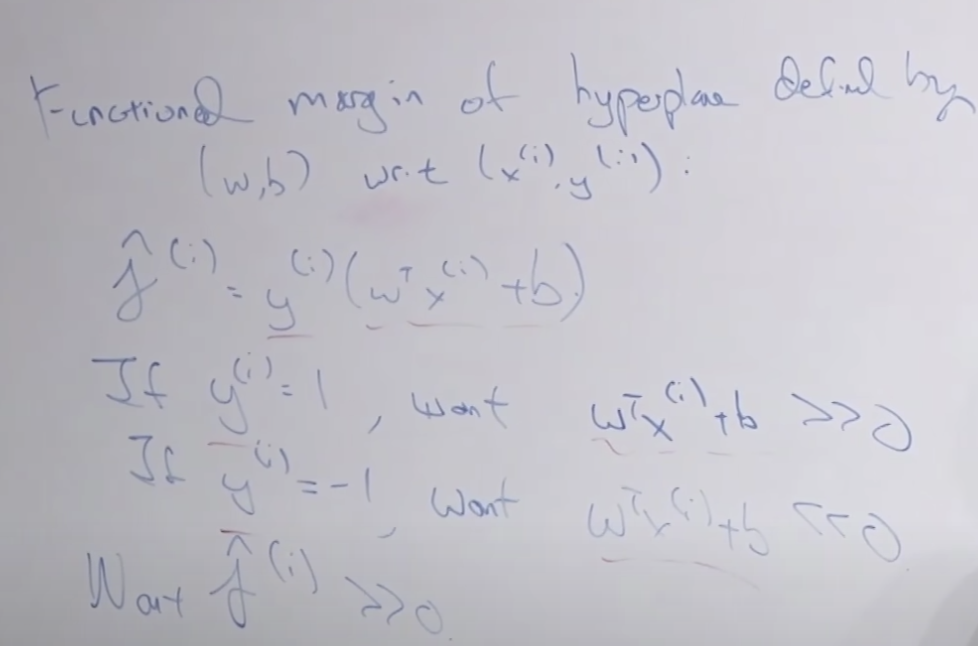 Functional margin of hyperplane defined by
(w,b) wrt (x⁽ⁱ⁾, y⁽ⁱ⁾):
γ̂⁽ⁱ⁾ = y⁽ⁱ⁾(wᵀx⁽ⁱ⁾ + b)
If y⁽ⁱ⁾ = 1, want wᵀx⁽ⁱ⁾ + b >> 0
If y⁽ⁱ⁾ = -1, want wᵀx⁽ⁱ⁾ + b << 0.
Want γ̂⁽ⁱ⁾ >> 0.